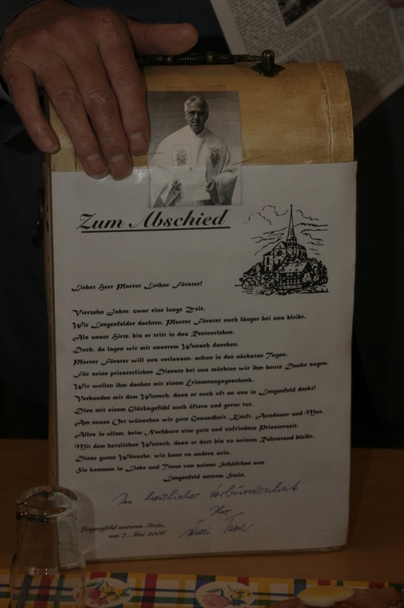 Zum Abschied
Lieber Herr Pfarrer Lothar Förster!
Vierzehn Jahre, zwar eine lange Zeit.
Wir Lengenfelder dachten, Pfarrer Förster noch länger bei uns bleibt.
Als unser Hirte, bis er tritt in das Rentnerleben.
Doch, da lagen wir mit unserem Wunsch daneben.
Pfarrer Förster will uns verlassen, schon in den nächsten Tagen.
Für seine priesterlichen Dienste bei uns möchten wir ihm heute Danke sagen.
Wir wollen ihm danken mit einem Erinnerungsgeschenk.
Verbunden mit dem Wunsch, dass er noch oft an uns in Lengenfeld denkt!
Dies mit einem Glücksgefühl auch öfters und gerne tut.
Am neuen Ort wünschen wir gute Gesundheit, Kraft, Ausdauer und Mut.
Alles in allem, beim Nachbarn eine gute und zufriedene Priesterzeit.
Mit dem herzlichen Wunsch, dass er dort bis zu seinem Ruhestand bleibt.
Diese guten Wünsche, wie kann es anders sein,
Sie kommen in Liebe und Treue von seinen Schäfchen aus
Lengenfeld unterm Stein.
In herzlicher Verbundenheit
Ihr
Lengenfeld unterm Stein,
am 7. Mai 2006